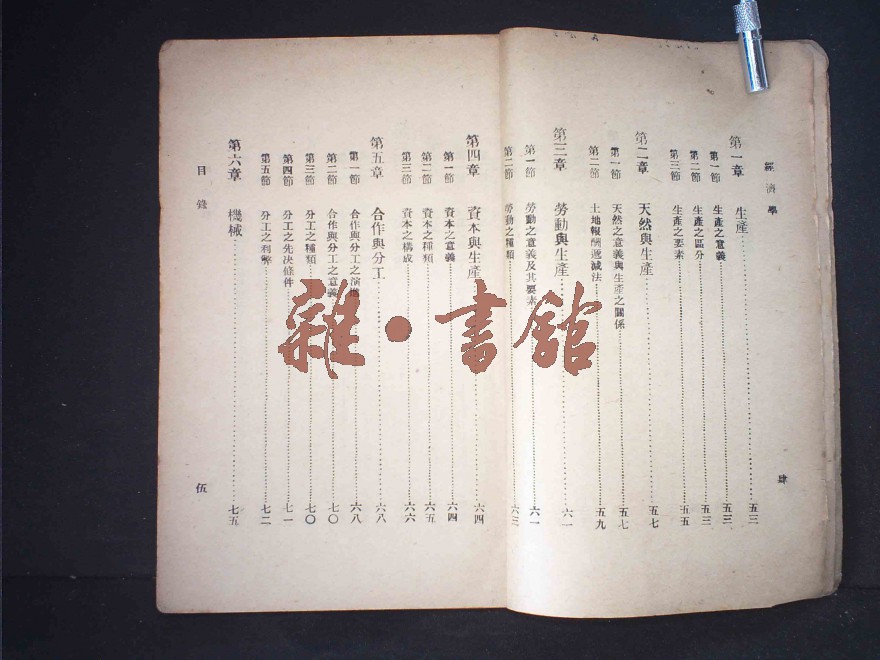 經濟學
第一章 生產 五三
第一節 生產之意義 五三
第二節 生產之區分 五三
第三節 生產之要素 五五
第二章 天然與生產 五七
第一節 天然之意義與生產之關係 五七
第二節 土地報酬遞減法 五九
第三章 勞動與生產 六一
第一節 勞動之意義及其要素 六一
第二節 勞動之種類 六三
肆
第四章 資本與生產 六四
第一節 資本之意義 六四
第二節 資本之種類 六五
第三節 資本之構成 六六
第五章 合作與分工 六八
第一節 合作與分工之演進 六八
第二節 合作與分工之意義 七〇
第三節 分工之種類 七〇
第四節 分工之先決條件 七一
第五節 分工之利弊 七二
第六章 機械 七五
目錄
伍
雜·書館